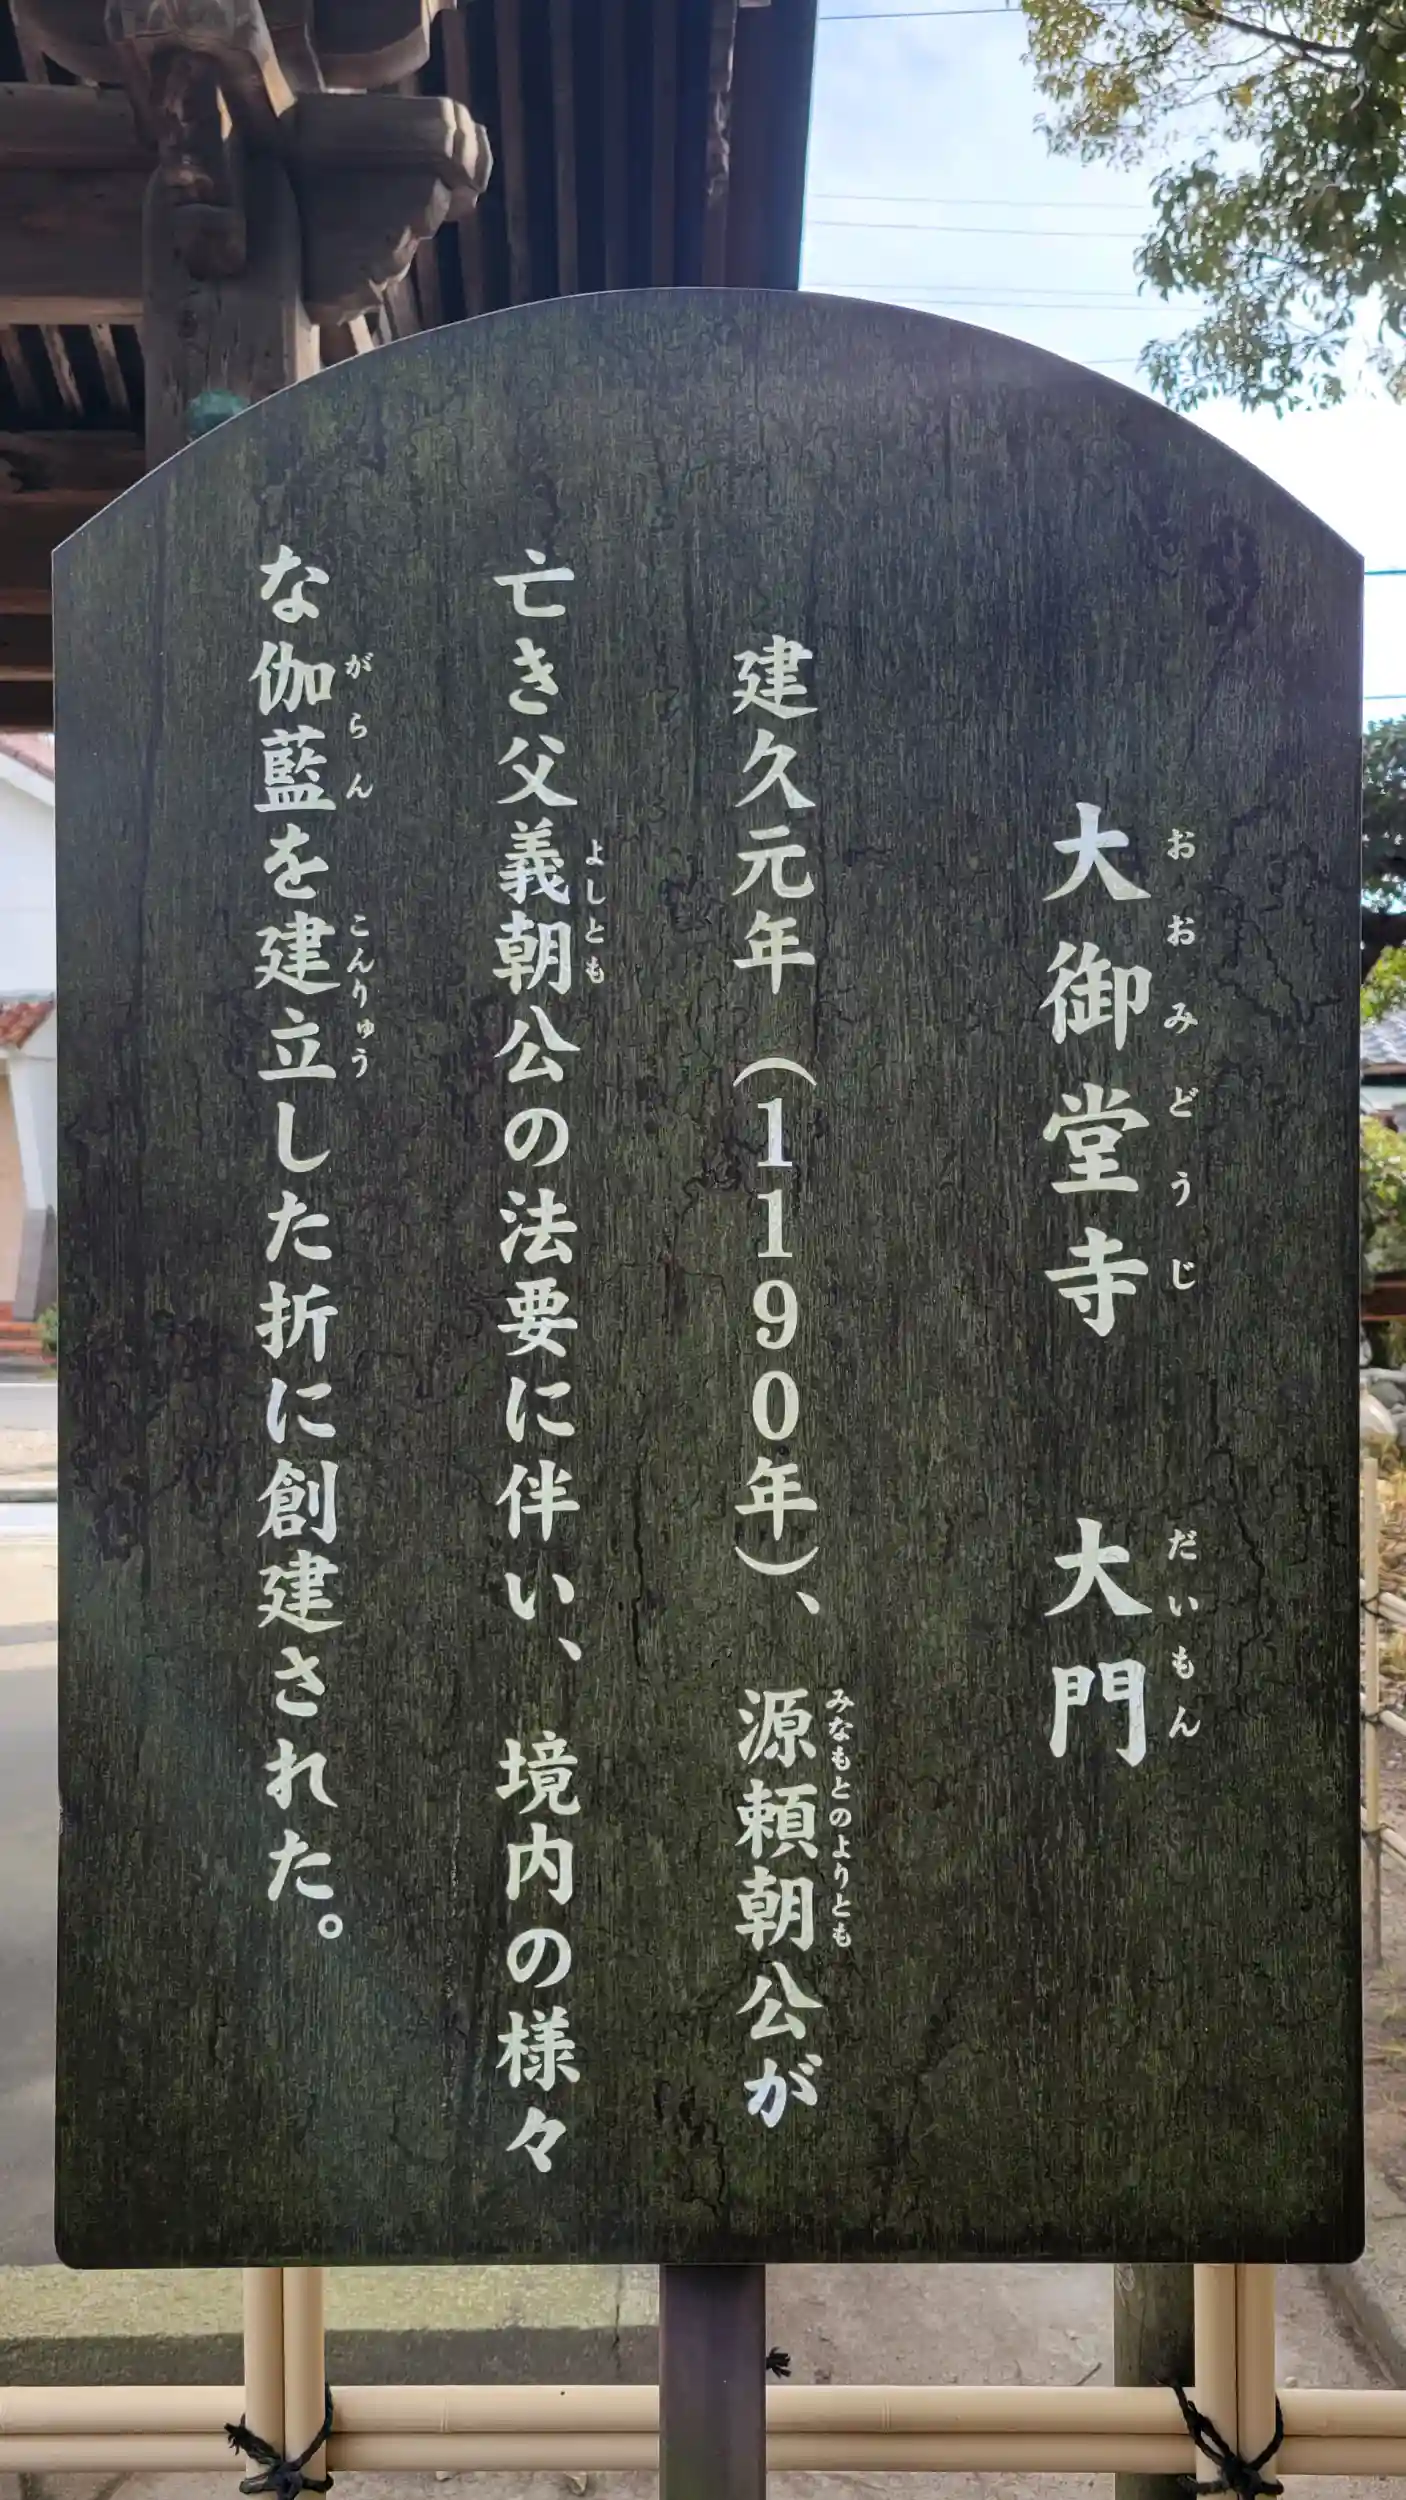 大御堂寺　大門
おおみどうじ　だいもん
建久元年（1190年）、源頼朝公が
みなもとのよりとも
亡き父義朝公の法要に伴い、境内の様々
よしとも
な伽藍を建立した折に創建された。
がらん　こんりゅう